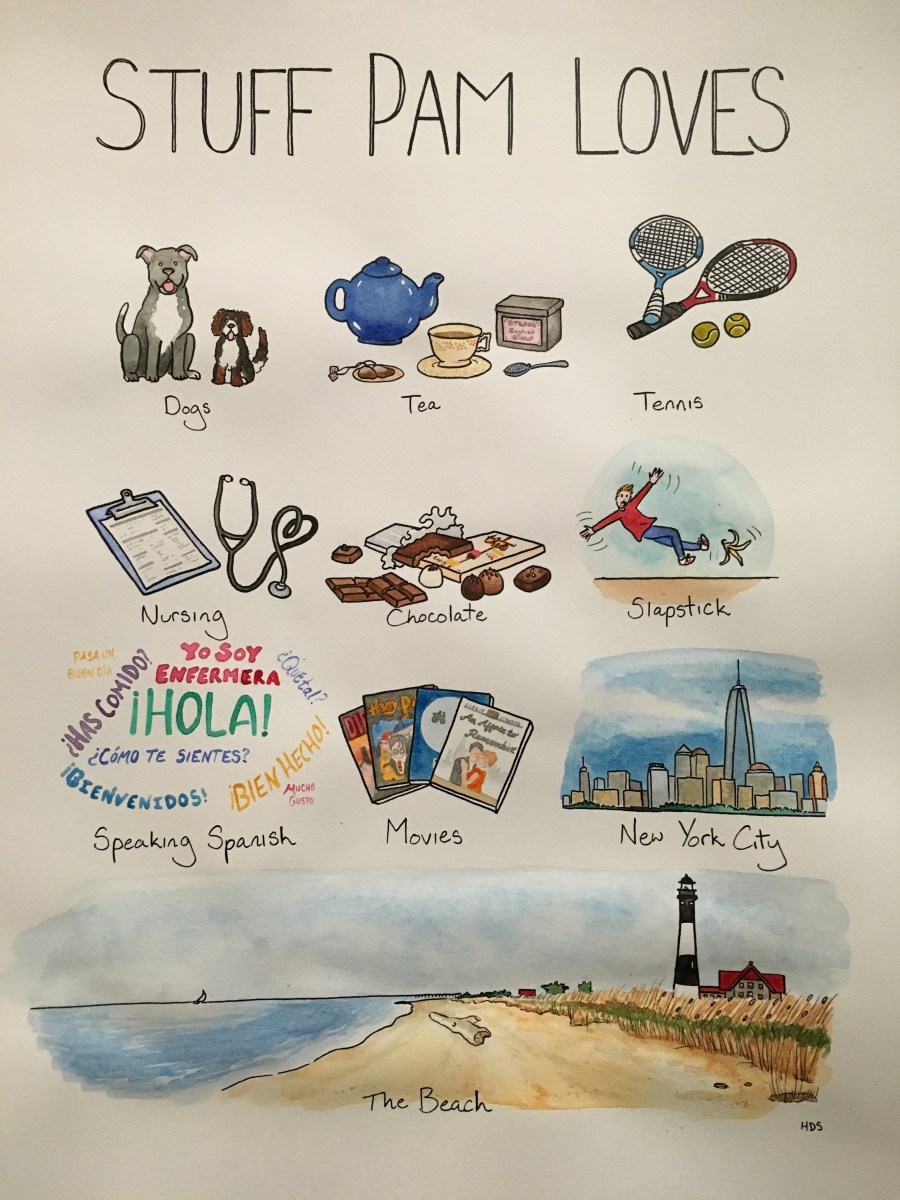 STUFF PAM LOVES
STRONG
English
Dogs
Tea
Tennis
Nursing
Chocolate
Slapstick
PASA UN
BUEN DÍA
¡HAS COMIDO?
YO SOY
ENFERMERA
¿Qué tal?
¡HOLA!
¿CÓMO TE SIENTES?
¡BIENVENIDOS!
¡BIEN HECHO!
MUCHO
GUSTO
An Affair to
Remember
Speaking Spanish
Movies
New York City
The Beach
HDS